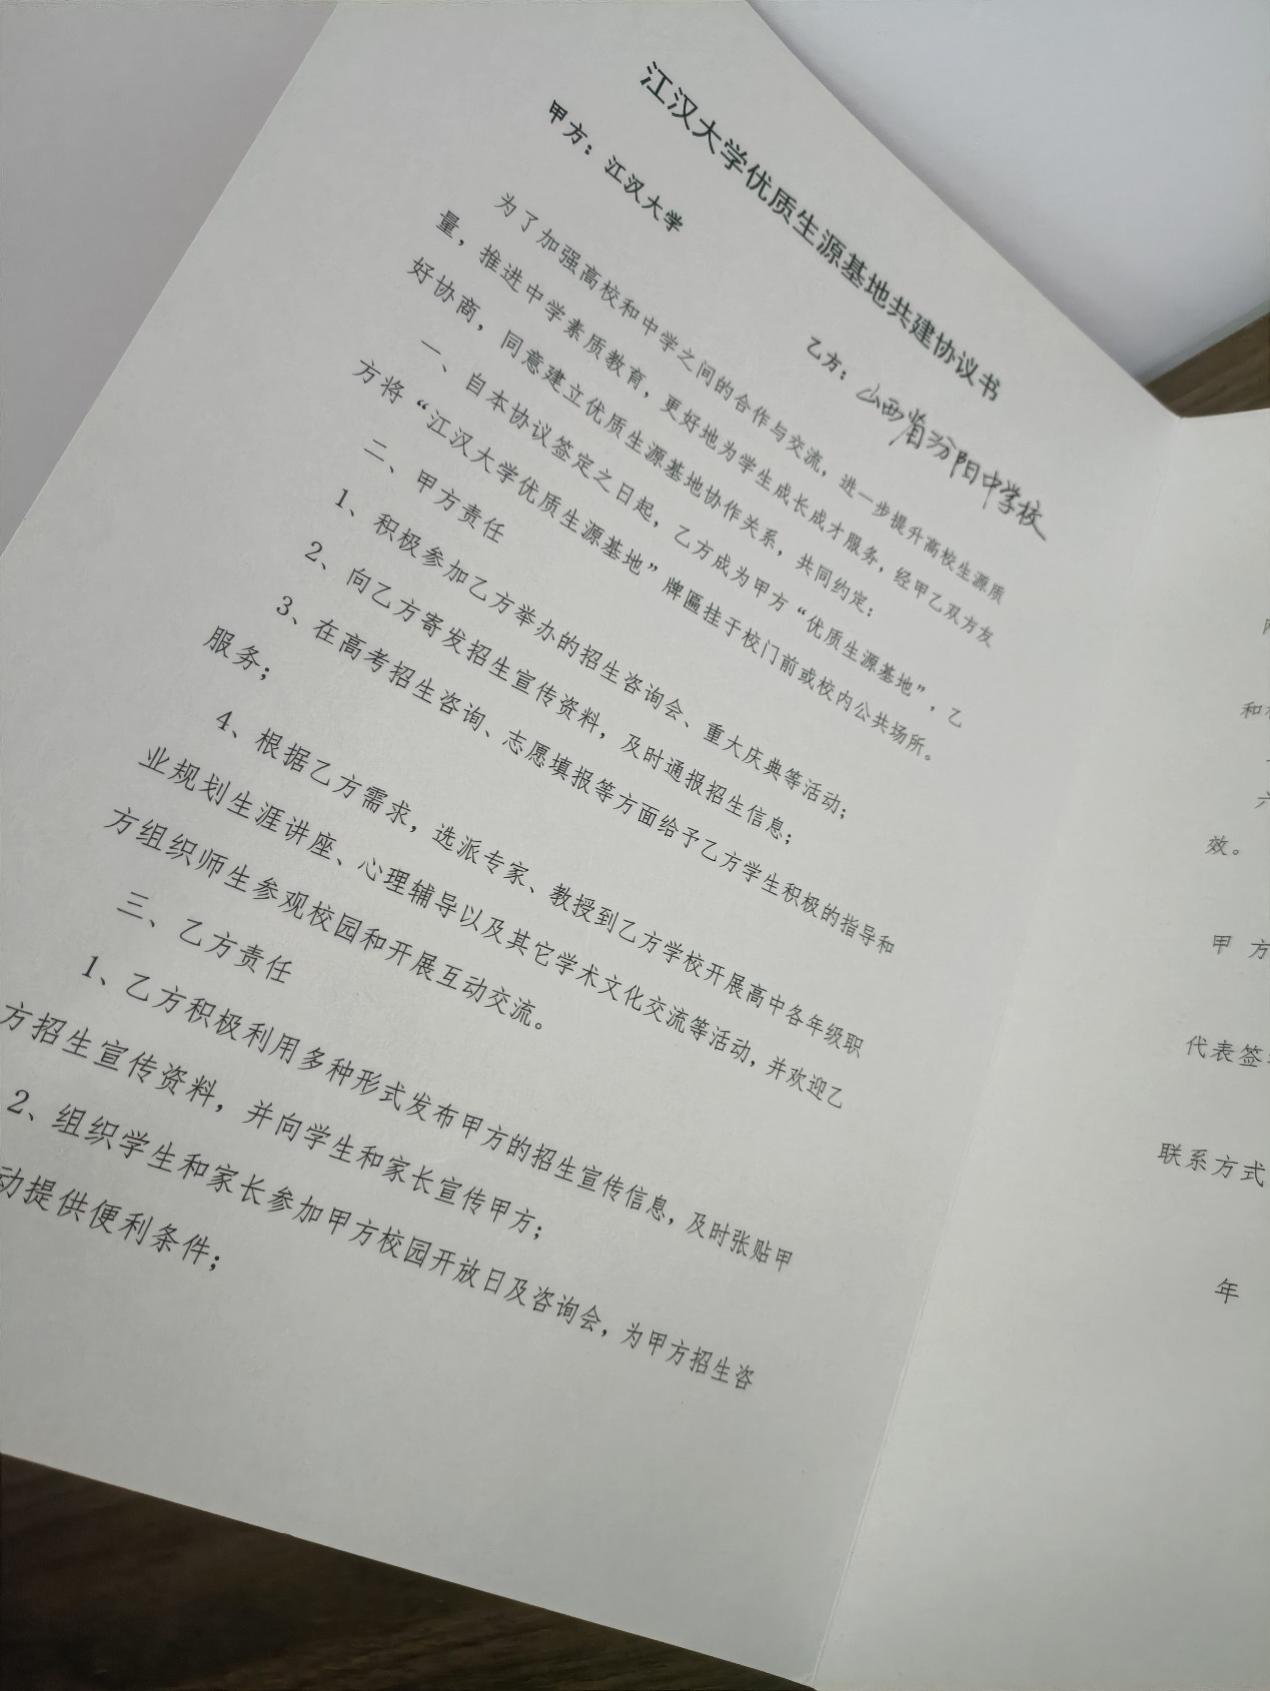 江汉大学优质生源基地共建协议书
甲方：江汉大学
乙方：山西省汾阳中学校
为了加强高校和中学之间的合作与交流，进一步提升高校生源质
量，推进中学素质教育，更好地为学生成长成才服务，经甲乙双方友
好协商，同意建立优质生源基地协作关系，共同约定：
一、自本协议签定之日起，乙方成为甲方“优质生源基地”，乙
方将“江汉大学优质生源基地”牌匾挂于校门前或校内公共场所。
二、甲方责任
1、积极参加乙方举办的招生咨询会、重大庆典等活动；
2、向乙方寄发招生宣传资料，及时通报招生信息；
3、在高考招生咨询、志愿填报等方面给予乙方学生积极的指导和
服务；
4、根据乙方需求，选派专家、教授到乙方学校开展高中各年级职
业规划生涯讲座、心理辅导以及其它学术文化交流等活动，并欢迎乙
方组织师生参观校园和开展互动交流。
三、乙方责任
1、乙方积极利用多种形式发布甲方的招生宣传信息，及时张贴甲
方招生宣传资料，并向学生和家长宣传甲方；
2、组织学生和家长参加甲方校园开放日及咨询会，为甲方招生咨
动提供便利条件；
和
六
效。
甲 方
代表签
联系方式
年